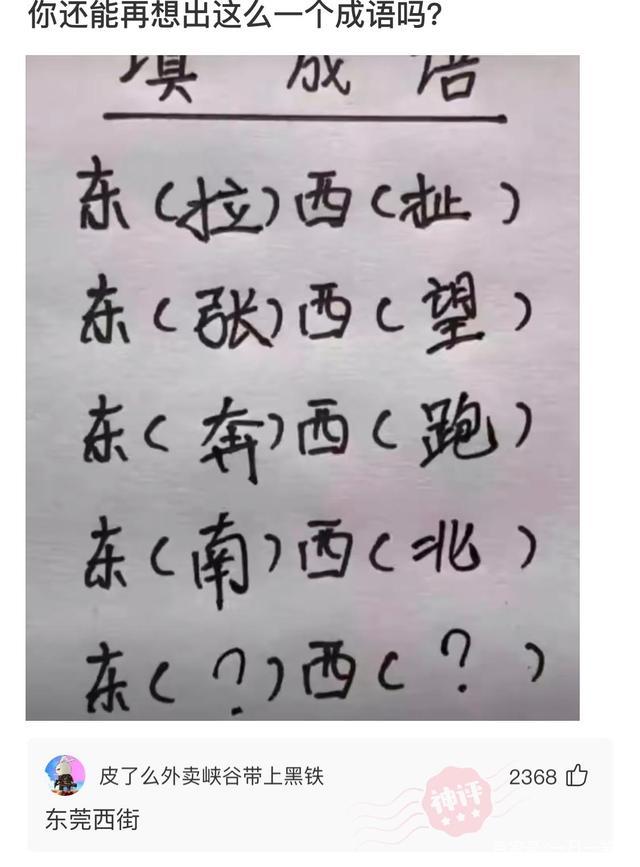 你还能再想出这么一个成语吗?
填 成 语
东(拉)西(扯)
东(张)西(望)
东(奔)西(跑)
东(南)西(北)
东(?)西(?)
皮了么外卖峡谷带上黑铁
2368
神评
东莞西街